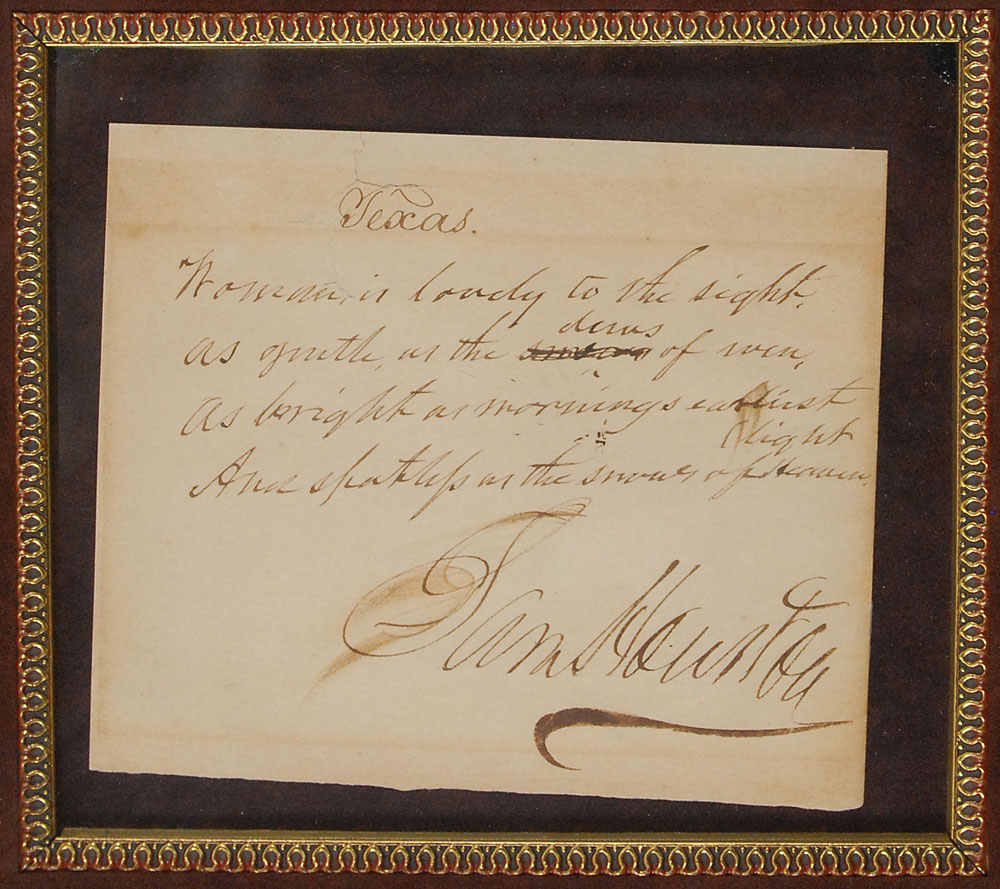 Texas.
Woman, is lovely to the sight,
As gentle, as the dews of even,
As bright as mornings earliest
light
And spotless as the snows of Heaven.
Sam Houston